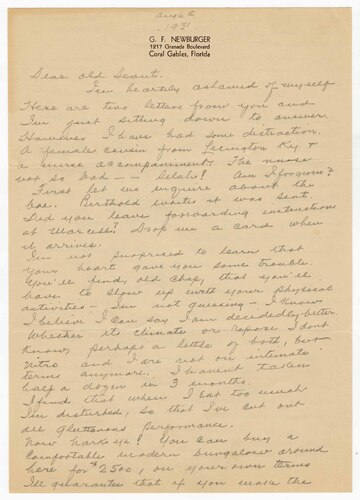 Aug 6th
1931
G. F. NEWBURGER
1217 Granada Boulevard
Coral Gables, Florida
Dear old Scout.
I'm heartily ashamed of myself
Here are two letters from you and
I'm just sitting down to answer.
However, I have had some distraction.
A female cousin from Lexington Ky &
a nurse accompaniment. The nurse
not so bad — — Selah! Am I forgiven?
First let me inquire about the
box. Berthold writes it was sent.
Did you leave forwarding instructions
at Marcell? Drop me a card when
it arrives.
I'm not surprised to learn that
your heart gave you some trouble.
You'll find, old Chap, that you'll
have to slow up with your physical
activities — I'm not guessing — I know
I believe I can say I am decidedly better.
Whether its climate or repose I dont
know, perhaps a little of both, but
Nitro and I are not on intimate
terms anymore. I havent taken
half a dozen in 3 months.
I find that when I Eat too much
I'm disturbed, so that I've cut out
all gluttonous performance.
Now hark ye! You can buy a
comfortable modern bungalow around
here for $2500, on your own terms
I'll guarantee that if you make the